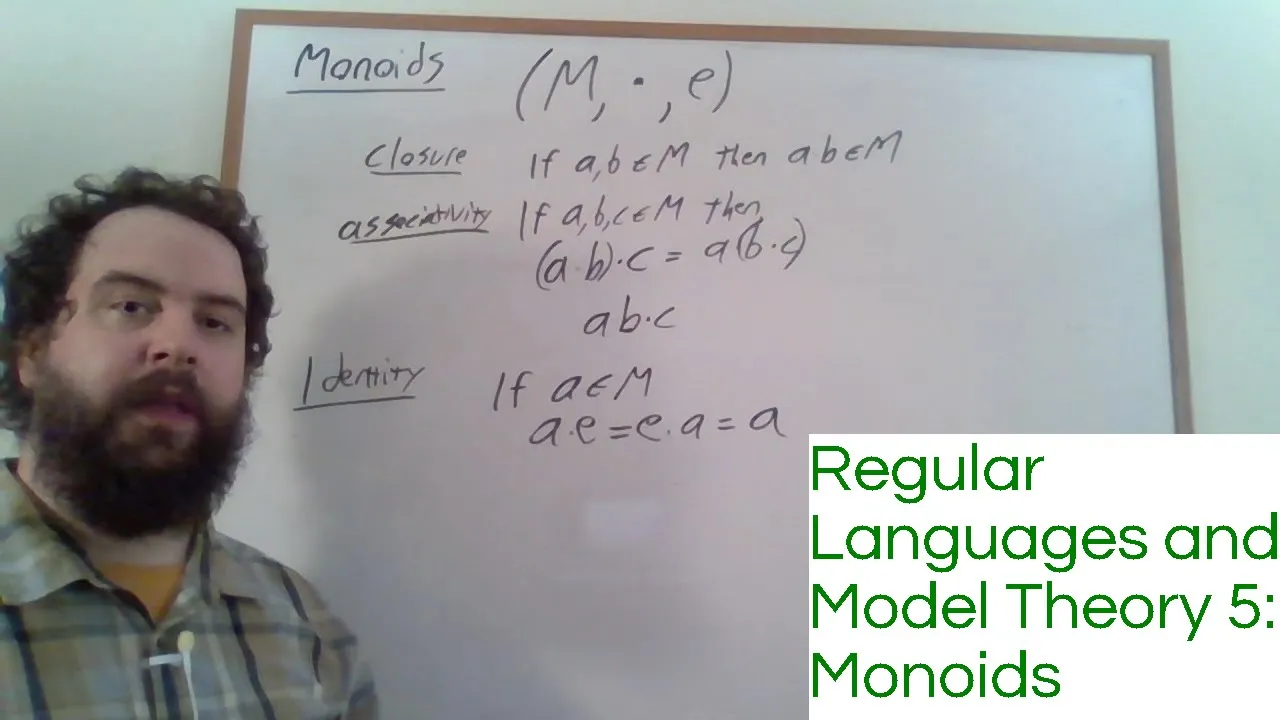 Monoids (M, ·, e)
closure If a,b ∈ M then a b ∈ M
associativity If a,b,c ∈ M then
(a·b)·c = a(b·c)
a b·c
Identity If a ∈ M
a·e = e·a = a
Regular
Languages and
Model Theory 5:
Monoids